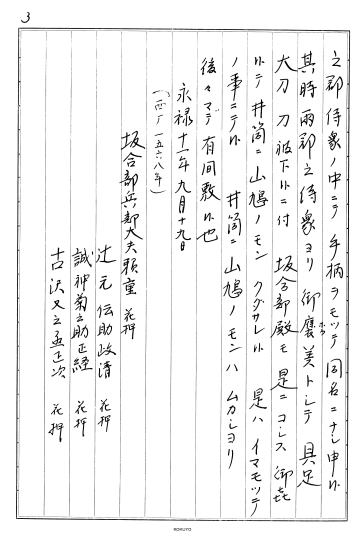 3
之郡侍衆ノ中ニテ手柄ヲモツテ同名ニナシ申候
其時両郡之侍衆ヨリ御褒美トシテ具足
ホウ
大刀 刀被下候ニ付 坂合部殿モ是ニコシス御㐂
候テ井筒ニ山鳩ノモン クダサレ候 是ハイマモツテ
ノ事ニテ候 井筒ニ山鳩ノモンハムカシヨリ
後々マデ有間敷候也
永禄十一年九月十九日
(西暦一五六八年)
坂合部兵部大夫頼重 花押
辻元伝助政清 花押
誠神菊之助正経 花押
古沢又之丞正次 花押
KOKUYO